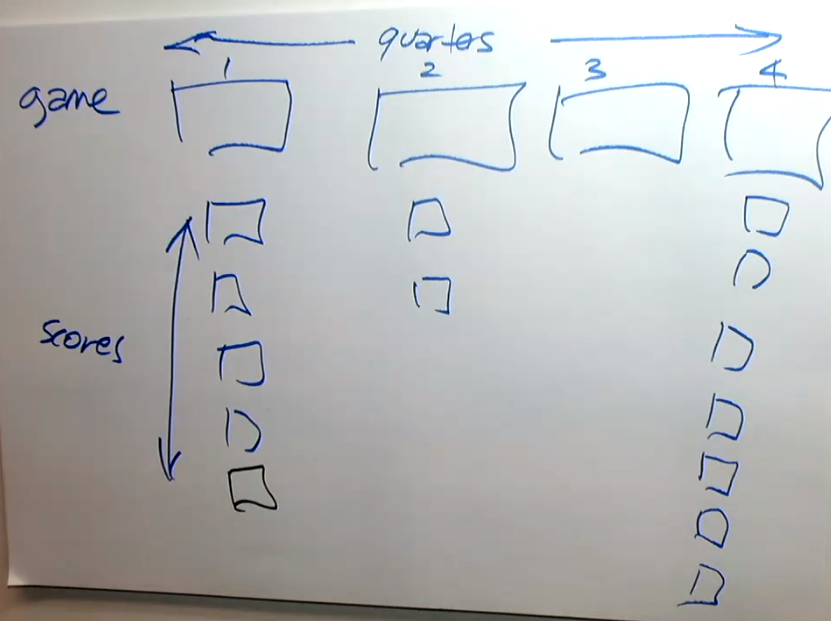 quarters
1 2 3 4
game
scores